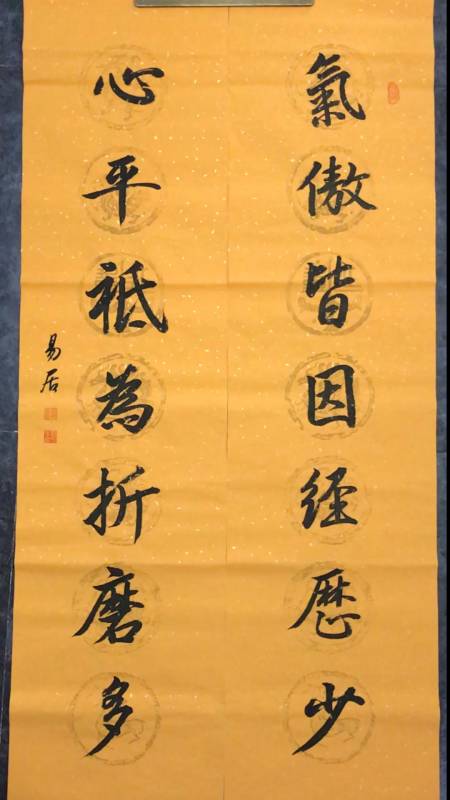 氣傲皆因經歷少
心平祗為折磨多
易居